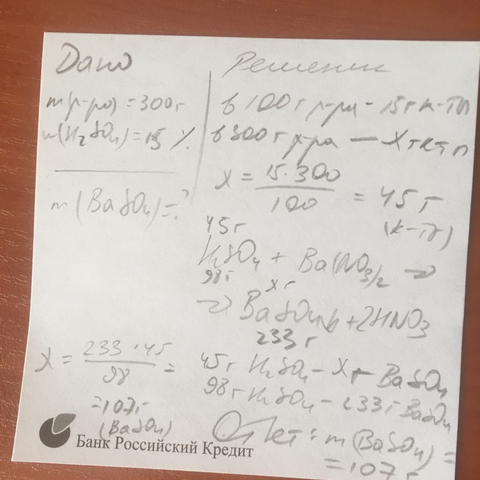 Дано
m(р-ра) = 300 г
w(H₂SO₄) = 15 %
m(BaSO₄) = ?
Решение
в 100 г р-ра - 15 г к-ты
в 300 г р-ра — X г к-ты
X = 15·300 / 100 = 45 г
(к-ты)
45 г
H₂SO₄ + Ba(NO₃)₂ →
98 г
X г
→ BaSO₄↓ + 2HNO₃
233 г
45 г H₂SO₄ - X г BaSO₄
98 г H₂SO₄ - 233 г BaSO₄
X = 233·45 / 98 =
= 107 г
(BaSO₄)
Ответ: m(BaSO₄) =
= 107 г
Банк Российский Кредит